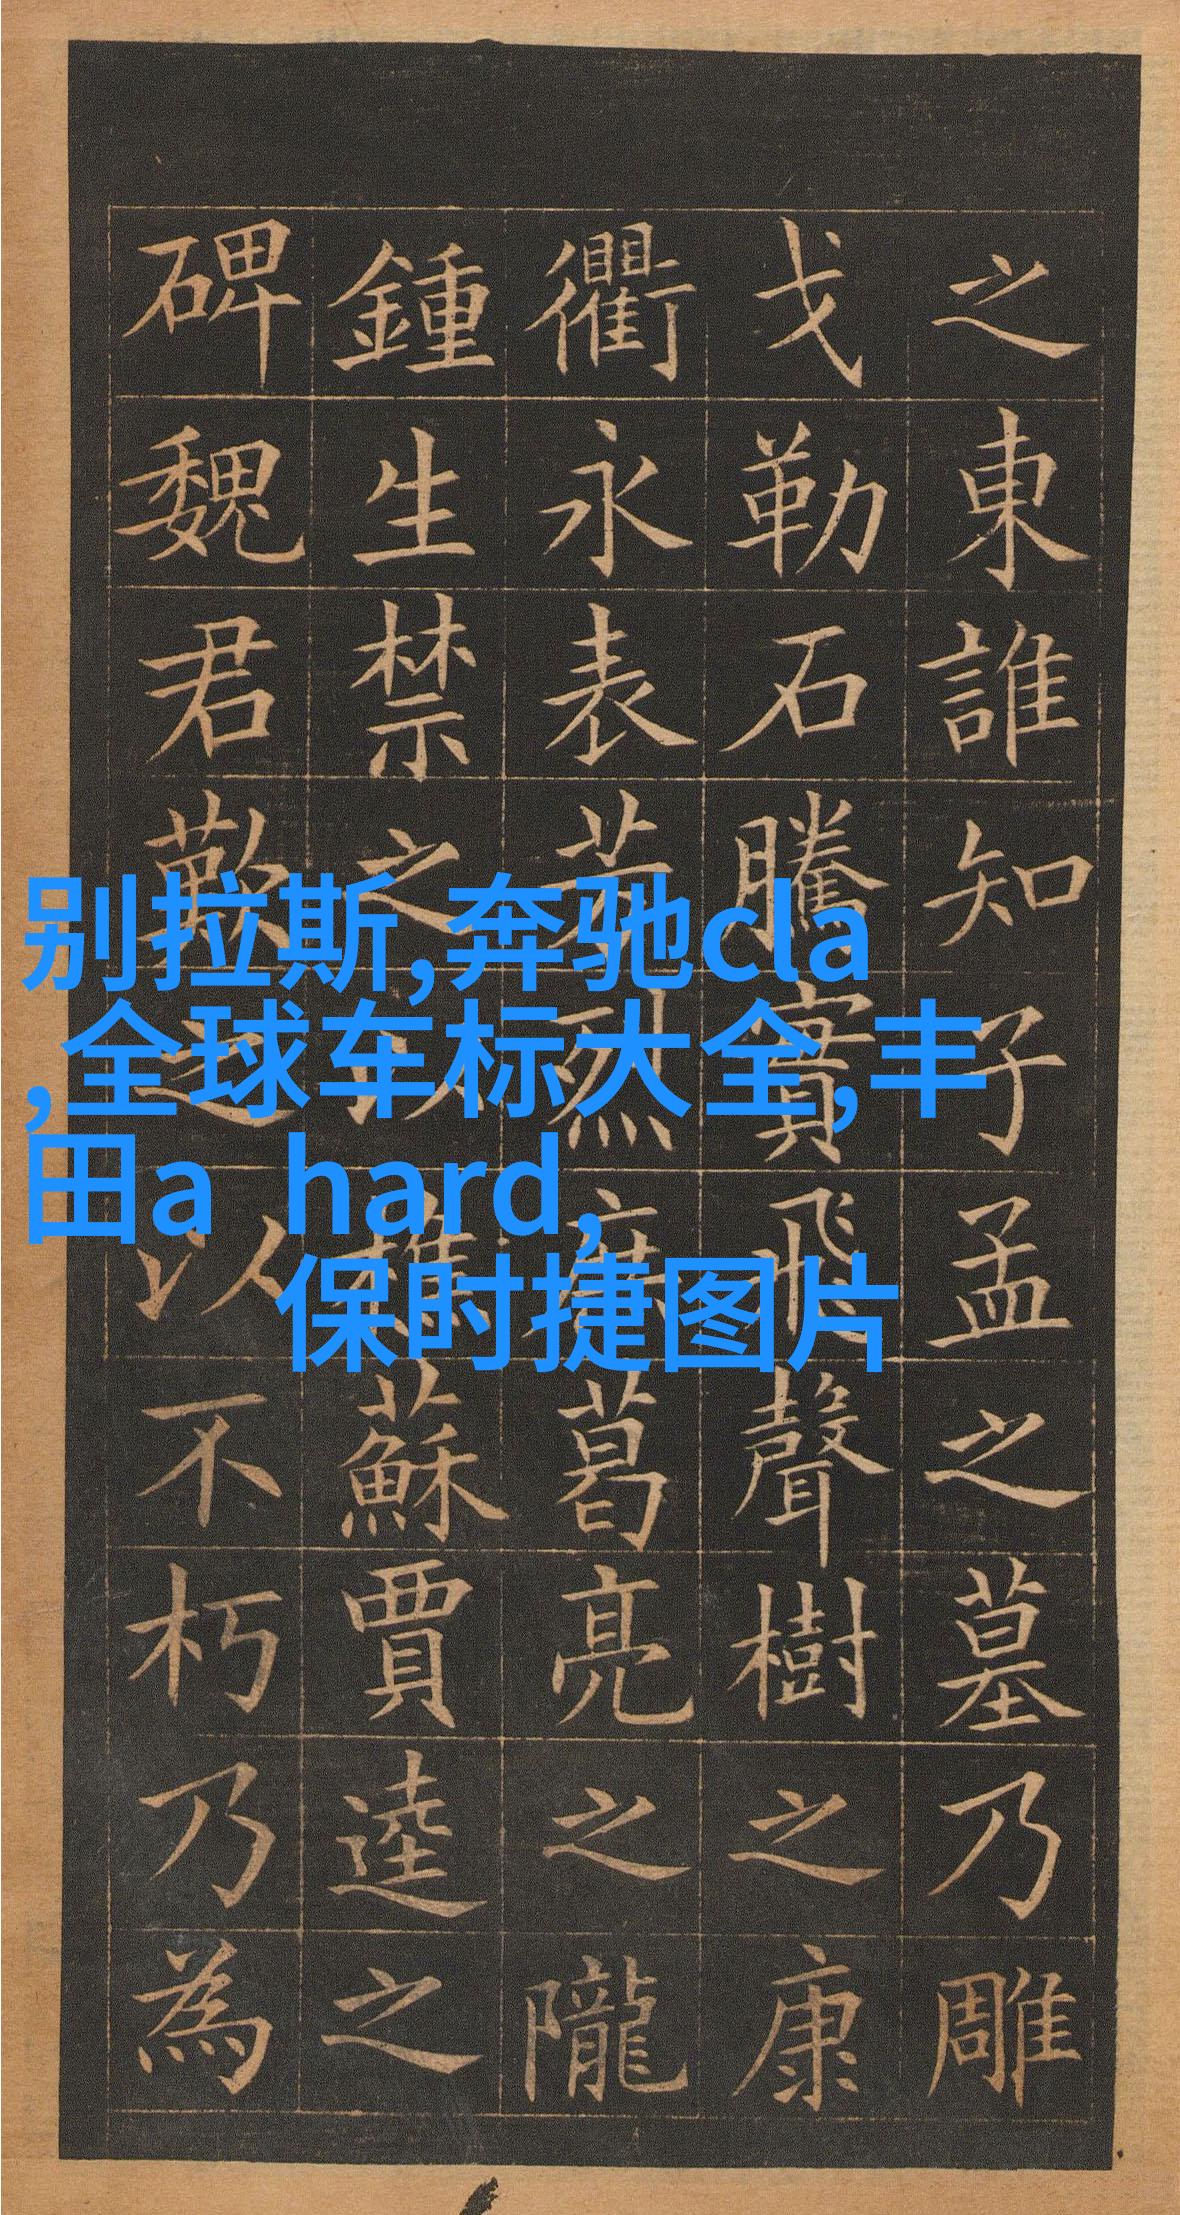 之東誰知子孟之墓乃雕
戈勒石騰實飛聲樹之康
衢永表芳烈庶葛亮之隴
鍾生禁之以樵蘇賈逵之
碑魏君歎之以不朽乃為
别拉斯,奔驰cla
,全球车标大全,丰
田a hard,
保时捷图片